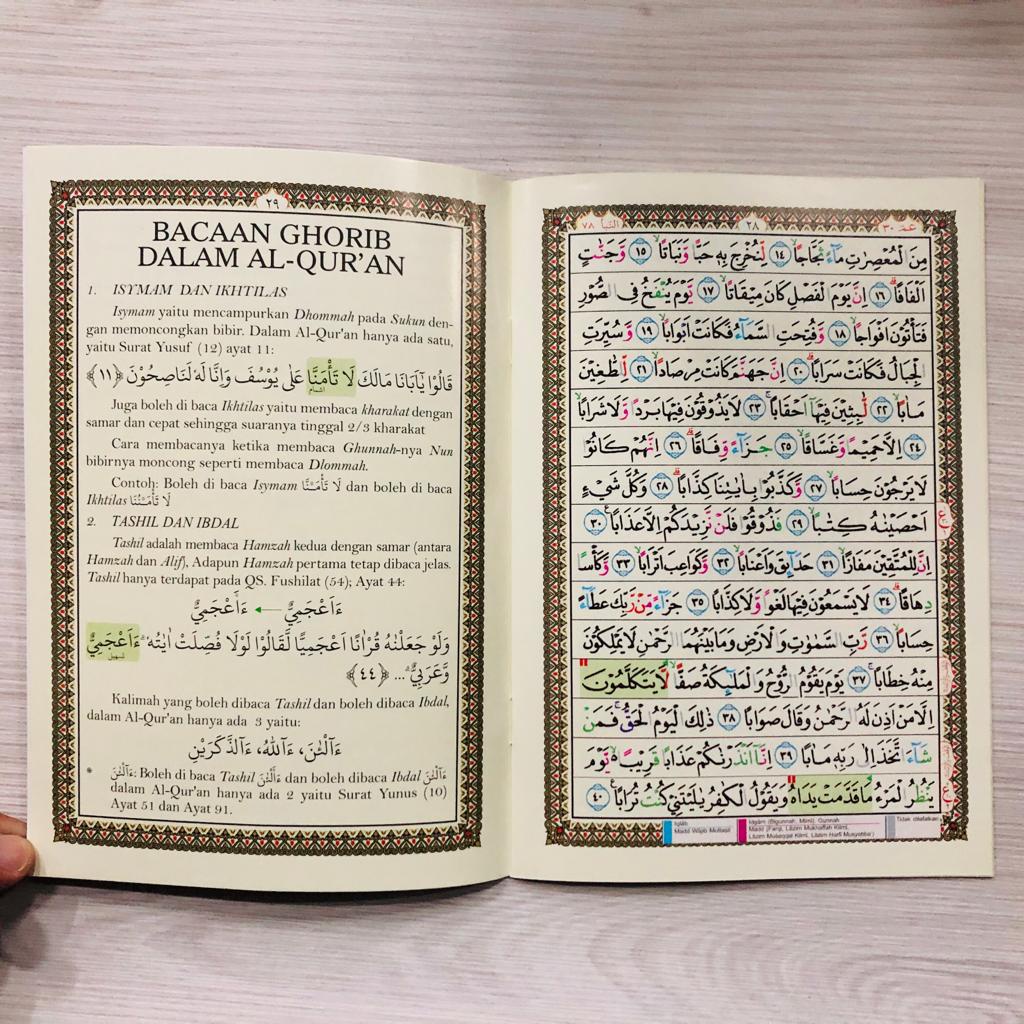 ٢٩
BACAAN GHORIB
DALAM AL-QUR'AN
1. ISYMAM DAN IKHTILAS
Isymam yaitu mencampurkan Dhommah pada Sukun den-
gan memoncongkan bibir. Dalam Al-Qur'an hanya ada satu,
yaitu Surat Yusuf (12) ayat 11:
قَالُوْا يٰٓاَبَانَا مَالَكَ لَا تَأْمَنَّا عَلٰى يُوْسُفَ وَاِنَّا لَهٗ لَنَاصِحُوْنَ ﴿١١﴾
اشمام
Juga boleh di baca Ikhtilas yaitu membaca kharakat dengan
samar dan cepat sehingga suaranya tinggal 2/3 kharakat
Cara membacanya ketika membaca Ghunnah-nya Nun
bibirnya moncong seperti membaca Dlommah.
Contoh: Boleh di baca Isymam لَا تَأْمَنَّا dan boleh di baca
Ikhtilas لَا تَأْمَنُنَا
2. TASHIL DAN IBDAL
Tashil adalah membaca Hamzah kedua dengan samar (antara
Hamzah dan Alif), Adapun Hamzah pertama tetap dibaca jelas.
Tashil hanya terdapat pada QS. Fushilat (54); Ayat 44:
ءَاَعْجَمِيٌّ ← ءَاَعْجَمِيٌّ
وَلَوْ جَعَلْنٰهُ قُرْاٰنًا اَعْجَمِيًّا لَّقَالُوْا لَوْلَا فُصِّلَتْ اٰيٰتُهٗ ۗ ءَاَعْجَمِيٌّ
تسهيل
وَّعَرَبِيٌّ ۗ ... ﴿٤٤﴾
Kalimah yang boleh dibaca Tashil dan boleh dibaca Ibdal,
dalam Al-Qur'an hanya ada 3 yaitu:
ءَآلْـٰٔنَ، ءَآللّٰهُ، ءَآلذَّكَرَيْنِ
* ءَآلْـٰٔنَ: Boleh di baca Tashil ءَاَلْـٰٔنَ dan boleh dibaca Ibdal ءَآلْـٰٔنَ
dalam Al-Qur'an hanya ada 2 yaitu Surat Yunus (10)
Ayat 51 dan Ayat 91.
عمّ ٣٠ ٢٨ النبأ ٧٨
مِنَ الْمُعْصِرٰتِ مَاۤءً ثَجَّاجًاۙ ١٤ لِّنُخْرِجَ بِهٖ حَبًّا وَّنَبَاتًاۙ ١٥ وَّجَنّٰتٍ
اَلْفَافًاۗ ١٦ اِنَّ يَوْمَ الْفَصْلِ كَانَ مِيْقَاتًاۙ ١٧ يَّوْمَ يُنْفَخُ فِى الصُّوْرِ
فَتَأْتُوْنَ اَفْوَاجًاۙ ١٨ وَّفُتِحَتِ السَّمَاۤءُ فَكَانَتْ اَبْوَابًاۙ ١٩ وَّسُيِّرَتِ
الْجِبَالُ فَكَانَتْ سَرَابًاۗ ٢٠ اِنَّ جَهَنَّمَ كَانَتْ مِرْصَادًاۙ ٢١ لِّلطّٰغِيْنَ
مَاٰبًاۙ ٢٢ لّٰبِثِيْنَ فِيْهَآ اَحْقَابًاۚ ٢٣ لَا يَذُوْقُوْنَ فِيْهَا بَرْدًا وَّلَا شَرَابًاۙ
٢٤ اِلَّا حَمِيْمًا وَّغَسَّاقًاۙ ٢٥ جَزَاۤءً وِّفَاقًاۗ ٢٦ اِنَّهُمْ كَانُوْا
لَا يَرْجُوْنَ حِسَابًاۙ ٢٧ وَّكَذَّبُوْا بِاٰيٰتِنَا كِذَّابًاۗ ٢٨ وَكُلَّ شَيْءٍ
اَحْصَيْنٰهُ كِتٰبًاۙ ٢٩ فَذُوْقُوْا فَلَنْ نَّزِيْدَكُمْ اِلَّا عَذَابًاࣖ ٣٠
اِنَّ لِلْمُتَّقِيْنَ مَفَازًاۙ ٣١ حَدَاۤئِقَ وَاَعْنَابًاۙ ٣٢ وَّكَوَاعِبَ اَتْرَابًاۙ ٣٣ وَّكَأْسًا
دِهَاقًاۗ ٣٤ لَا يَسْمَعُوْنَ فِيْهَا لَغْوًا وَّلَا كِذَّابًا ٣٥ جَزَاۤءً مِّنْ رَّبِّكَ عَطَاۤءً
حِسَابًاۙ ٣٦ رَّبِّ السَّمٰوٰتِ وَالْاَرْضِ وَمَا بَيْنَهُمَا الرَّحْمٰنِ لَا يَمْلِكُوْنَ
مِنْهُ خِطَابًاۚ ٣٧ يَوْمَ يَقُوْمُ الرُّوْحُ وَالْمَلٰۤىِٕكَةُ صَفًّاۙ لَّا يَتَكَلَّمُوْنَ
اِلَّا مَنْ اَذِنَ لَهُ الرَّحْمٰنُ وَقَالَ صَوَابًا ٣٨ ذٰلِكَ الْيَوْمُ الْحَقُّۚ فَمَنْ
شَاۤءَ اتَّخَذَ اِلٰى رَبِّهٖ مَاٰبًا ٣٩ اِنَّآ اَنْذَرْنٰكُمْ عَذَابًا قَرِيْبًاەۙ يَّوْمَ
يَنْظُرُ الْمَرْءُ مَا قَدَّمَتْ يَدَاهُ وَيَقُوْلُ الْكٰفِرُ يٰلَيْتَنِيْ كُنْتُ تُرَابًاࣖ ٤٠
Iqlāb
Madd Wājib Muttaṣil
Idgām (Bigunnah, Mimi), Gunnah
Madd (Farqi, Lāzim Mukhaffah Kilmi,
Lāzim Musaqqal Kilmi, Lāzim Harfi Musyabba')
Tidak dilafalkan